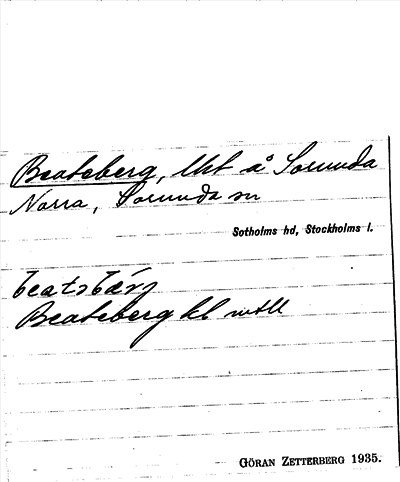 Beateberg, lht å Sorunda
Norra, Sorunda sn
Sotholms hd, Stockholms l.
Beateberg kl
GÖRAN ZETTERBERG 1935.